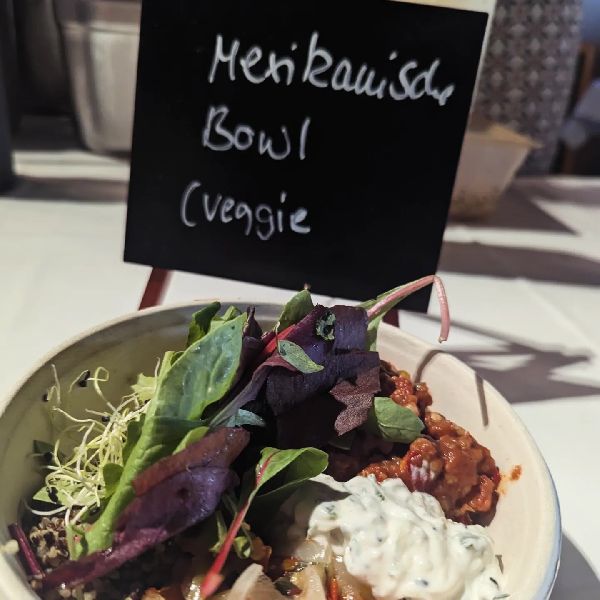 Mexikanische
Bowl
(veggie